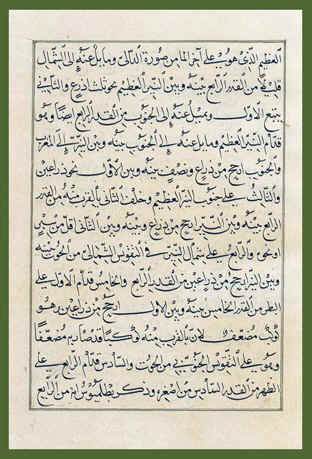 العظيم الذي هو على آخر الماء من صورة الدالي ومايل عنه إلى الشمال
قليلا من القدر الرابع بينه وبين النير العظيم نحو ثلث ذراع والثاني
يتبع الأول ويميل عنه إلى الجنوب من القدر الرابع ايضا وهو
قدام النير العظيم ومايل عنه إلى الجنوب بينه وبين النير
والجنوب ارجح من ذراع ونصف بينه وبين الأول نحو ذراعين
والثالث على جنوب النير العظيم وخلف الثاني بالقرب منه من القدر
الرابع بينه وبين النير ارجح من ذراع وبينه وبين الثاني اقل من
والرابع على شمال النير في التقوس الشمالي من الحوت بينه
وبين النير ارجح من ذراعين من القدر الرابع والخامس قدام الأول على
من القدر الخامس بينه وبين الأول ارجح من ذراعين وهو
كوكب مضعف لان بالقرب منه كوكبا قد صار به مضعفا
وهو على التقوس الجنوبي من الحوت والسادس قدام الرابع على
الظهر من القدر السادس من اصغره وذكر بطلميوس انه من الرابع